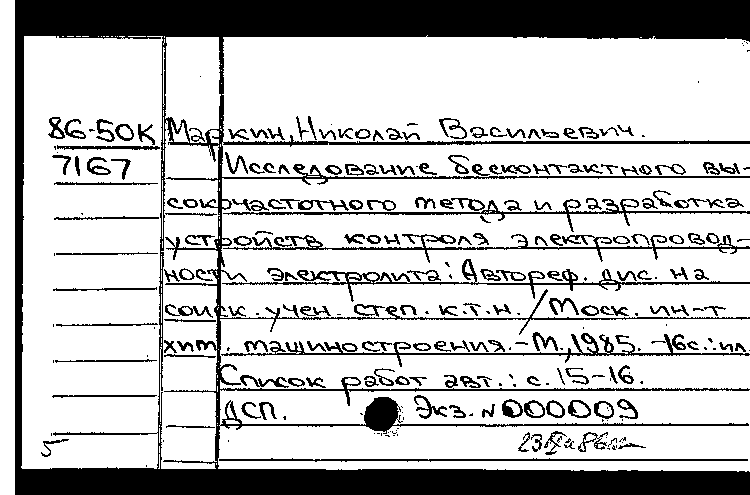 86-50К Маркин, Николай Васильевич.
7167 Исследование бесконтактного вы-
сокочастотного метода и разработка
устройств контроля электропровод-
ности электролита: Автореф. дис. на
соиск. учен. степ. к.т.н. / Моск. ин-т
хим. машиностроения. - М., 1985. - 16с.: ил
Список работ авт.: с. 15-16.
ДСП. Экз. N 000009
5